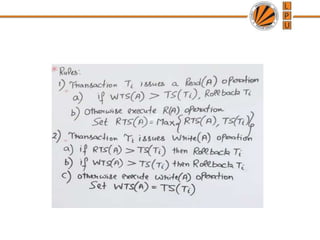 L
P
U
* Rules:
1) Transaction Ti issues a Read(A) operation
a) if WTS(A) > TS(Ti), Rollback Ti
b) Otherwise execute R(A) operation
Set RTS(A) = Max{RTS(A), TS(Ti)}
2) Transaction Ti issues Write(A) operation
a) if RTS(A) > TS(Ti) then Rollback Ti
b) if WTS(A) > TS(Ti) then Rollback Ti
c) otherwise execute write(A) operation
Set WTS(A) = TS(Ti)